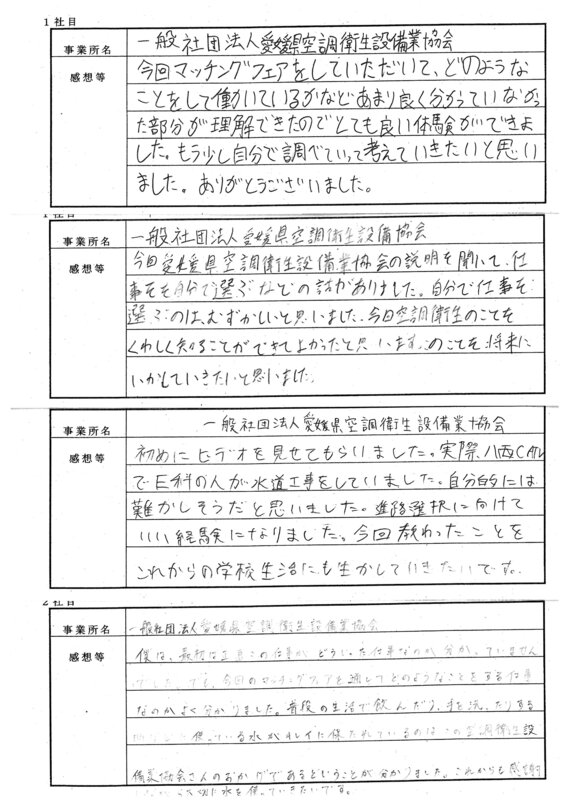 1社目
事業所名
一般社団法人愛媛県空調衛生設備業協会
感想等
今回マッチングフェアをしていただいて、どのような
ことをして働いているかなどあまり良く分かっていなかっ
た部分が理解できたのでとても良い体験ができま
した。もう少し自分で調べていって考えていきたいと思い
ました。ありがとうございました。
1社目
事業所名
一般社団法人愛媛県空調衛生設備協会
感想等
今回愛媛県空調衛生設備業協会の説明を聞いて、仕
事をを自分で選ぶなどの話がありました。自分で仕事を
選ぶのは、むずかしいと思いました、今日空調衛生のことを
くわしく知ることができてよかったと思います。このことを将来に
いかしていきたいと思いました。
事業所名
一般社団法人愛媛県空調衛生設備業協会
感想等
初めにビデオを見せてもらいました。実際、八西CATV
でE科の人が水道工事をしていました。自分的には
難かしそうだと思いました。進路選択に向けて
いい経験になりました。今回教わったことを
これからの学校生活にも生かしていきたいです。
2社目
事業所名
一般社団法人愛媛県空調衛生設備業協会
感想等
僕は、最初は工事この仕事が どういった仕事なのか分かっていません
でした。でも、今回のマッチングフェアを通してどのようなことをする仕事
なのかよく分かりました。普段の生活で飲んだり、手を洗ったりする
使っている水がキレイに保たれているのはこの空調衛生設
備業協会さんのおかげであるということが分かりました。これからも感謝
水を使っていきたいです。